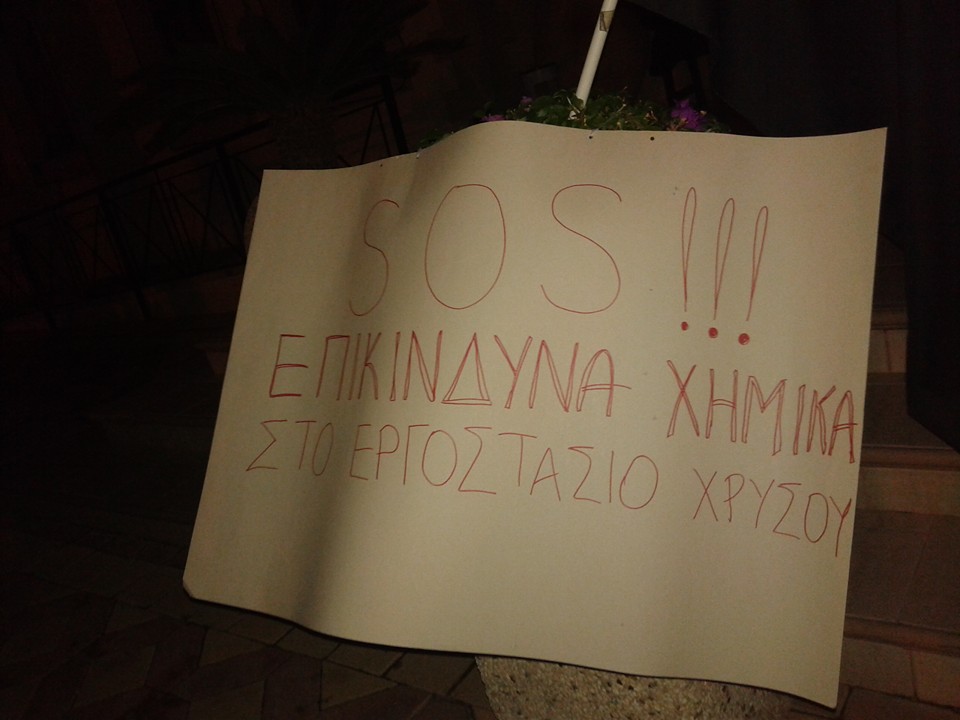 SOS!!!
ΕΠΙΚΙΝΔΥΝΑ ΧΗΜΙΚΑ
ΣΤΟ ΕΡΓΟΣΤΑΣΙΟ ΧΡΥΣΟΥ